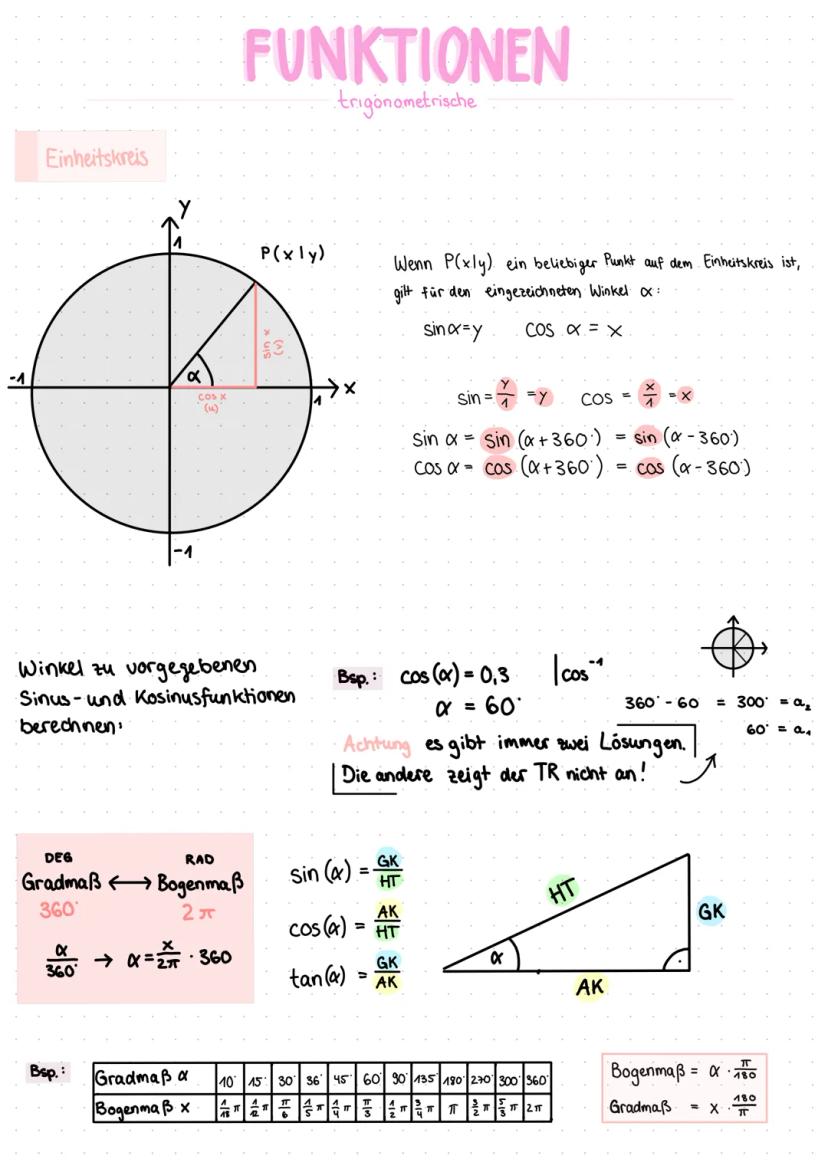 FUNKTIONEN
trigonometrische
Einheitskreis
y
1
P(x|y)
sin x
(v)
α
-1
cos x
(u)
1
x
-1
Wenn P(x|y) ein beliebiger Punkt auf dem Einheitskreis ist,
gilt für den eingezeichneten Winkel α:
sin α = y cos α = x
sin = y/1 = y cos = x/1 = x
sin α = sin (α + 360°) = sin (α - 360°)
cos α = cos (α + 360°) = cos (α - 360°)
Winkel zu vorgegebenen
Sinus- und Kosinusfunktionen
berechnen:
Bsp.: cos(α) = 0,3 | cos⁻¹
α = 60°
360° - 60 = 300° = a₂
60° = a₁
Achtung es gibt immer zwei Lösungen.
Die andere zeigt der TR nicht an!
DEG RAD
Gradmaß ↔ Bogenmaß
360° 2π
α/360° → α = x/2π · 360
sin (α) = GK/HT
cos(α) = AK/HT
tan(α) = GK/AK
HT
GK
α
AK
Bsp.:
Gradmaß α 10° 15° 30° 36° 45° 60° 90° 135° 180° 270° 300° 360°
Bogenmaß x 1/18 π 1/12 π π/6 1/5 π 1/4 π π/3 1/2 π 3/4 π π 3/2 π 5/3 π 2π
Bogenmaß = α · π/180
Gradmaß = x · 180/π